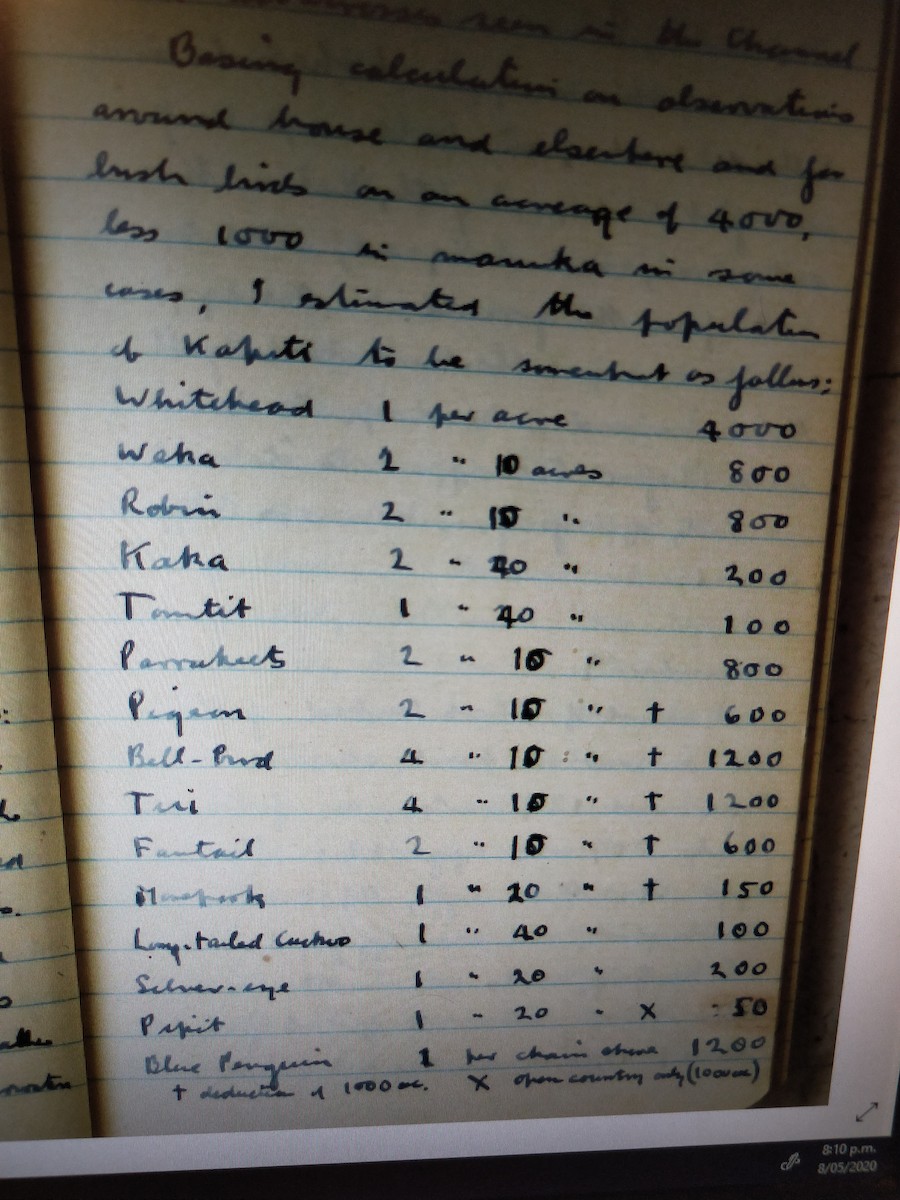 seen in the Channel
Basing calculation on observations
around house and elsewhere and for
bush birds on an acreage of 4000,
less 1000 in manuka in some
cases, I estimated the population
of Kapiti to be somewhat as follows:
Whitehead 1 per acre 4000
Weka 2 " 10 acres 800
Robin 2 " 10 " 800
Kaka 2 " 20 " 200
Tomtit 1 " 40 " 100
Parrakeets 2 " 10 " 800
Pigeon 2 " 10 " † 600
Bell-Bird 4 " 10 " † 1200
Tui 4 " 10 " † 1200
Fantail 2 " 10 " † 600
Morepork 1 " 20 " † 150
Long-tailed Cuckoo 1 " 40 " 100
Silver-eye 1 " 20 " 200
Pipit 1 " 20 " X 50
Blue Penguin 1 per chain shore 1200
† deduction of 1000 ac. X open country only (1000 ac)
8:10 p.m.
8/05/2020